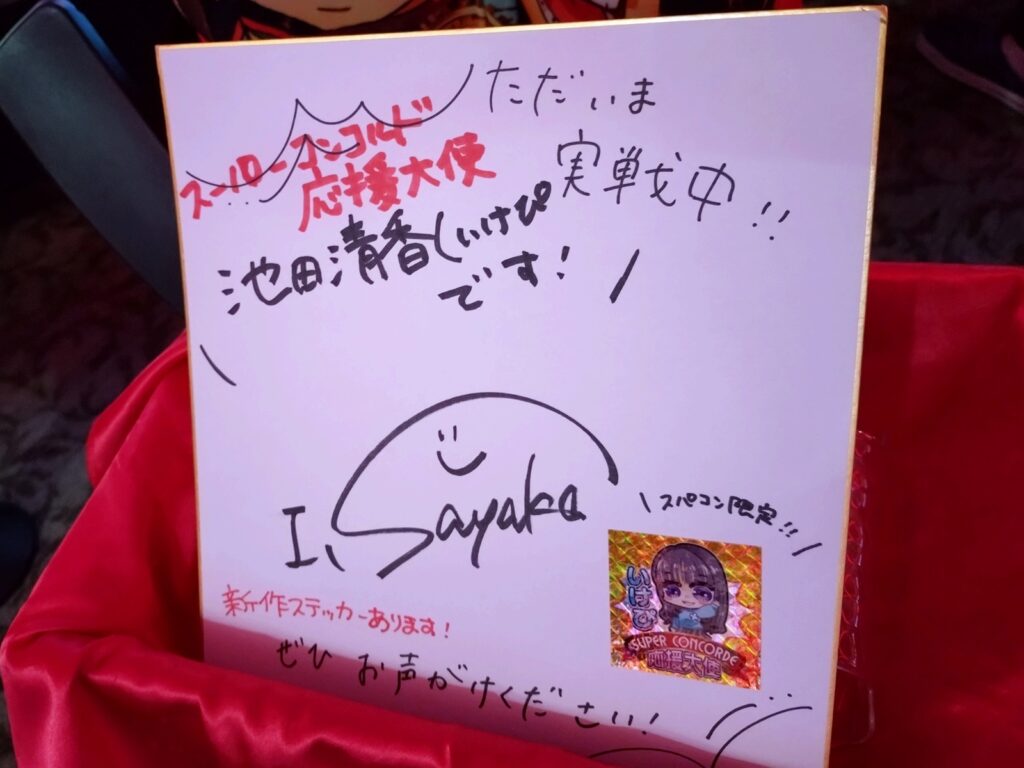 ただいま
実戦中!!
スーパーコンコルド
応援大使
池田清香(いけぴ
です!
I, Sayaka
\スパコン限定!!/
いけぴ
SUPER CONCORDE
応援大使
新作ステッカーあります!
ぜひお声がけください!